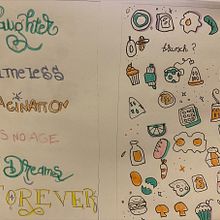 Laughter
TIMELESS
IMAGINATION
IS NO AGE
Dreams
FOREVER
brunch?